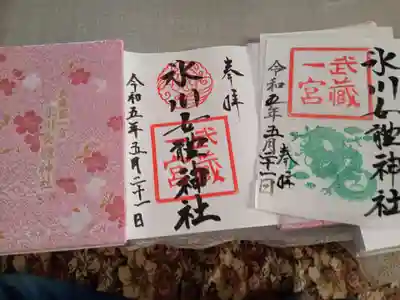 武蔵一宮
氷川女體神社
奉拝
武蔵
一宮
氷川女體神社
令和五年五月二十一日
武蔵
一宮
氷川女體神社
奉拝
令和五年五月二十一日